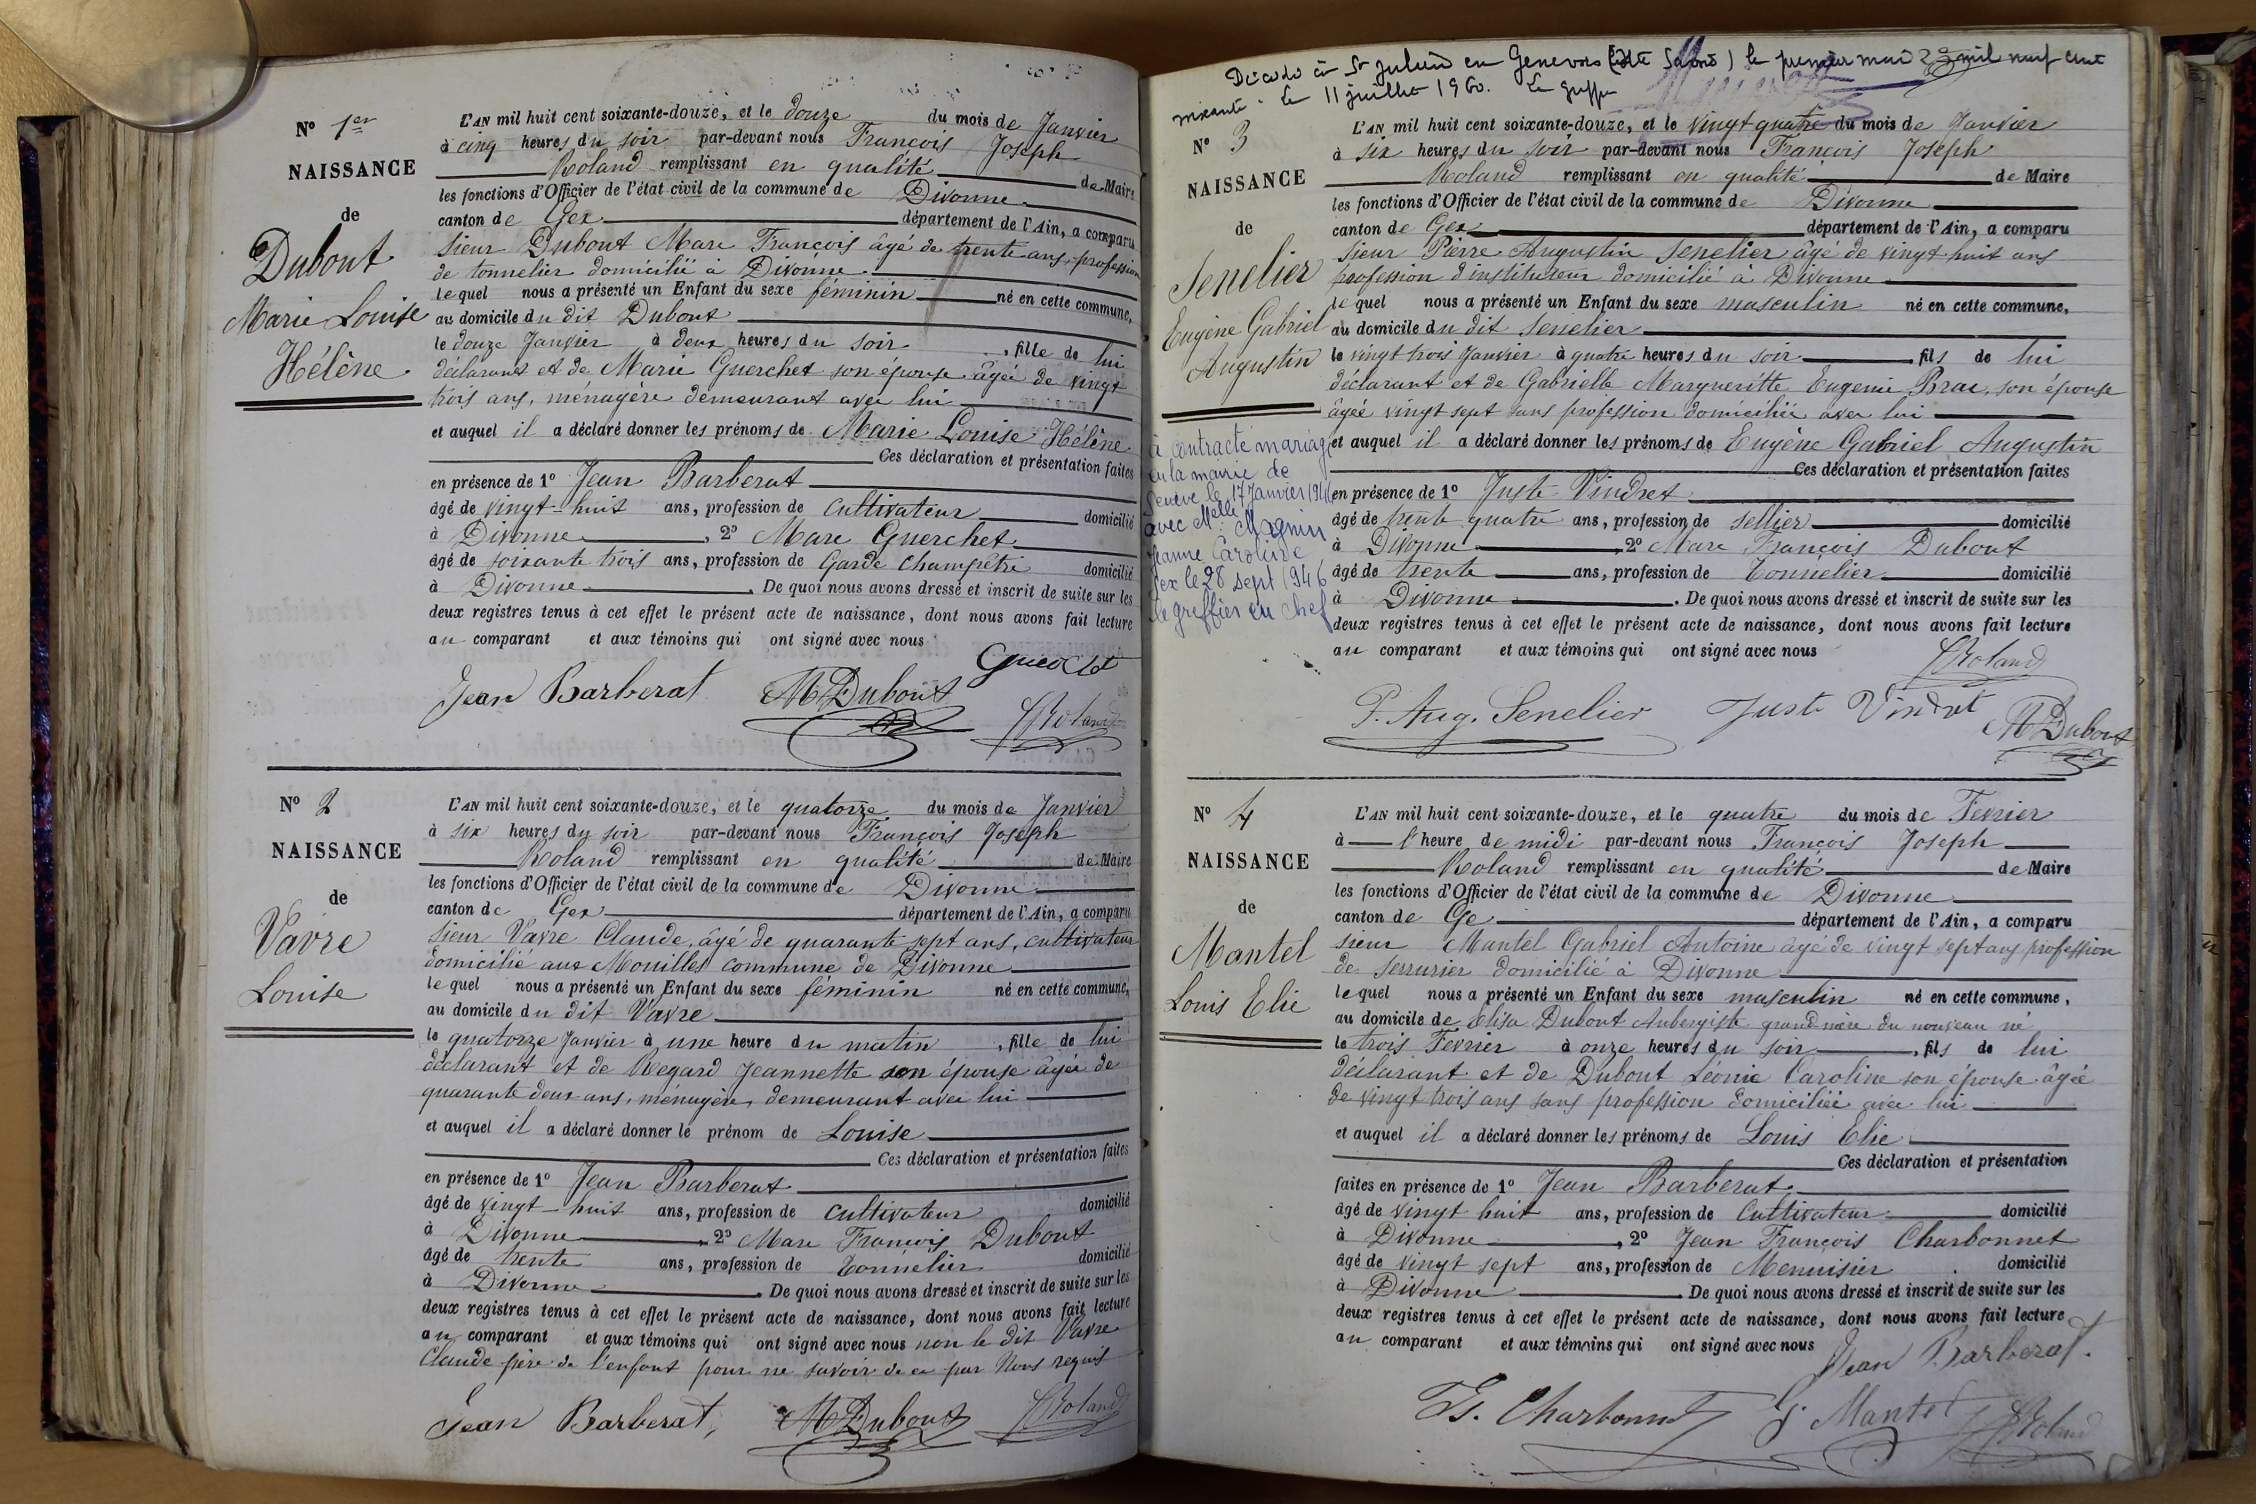 N° 1er
NAISSANCE
de
Dubout
Marie Louise
Hélène
L'AN mil huit cent soixante-douze, et le douze du mois de Janvier
à cinq heures du soir par-devant nous François Joseph
Roland remplissant en qualité de Maire
les fonctions d'Officier de l'état civil de la commune de Divonne
canton de Gex département de l'Ain, a comparu
Sieur Dubout Marc François âgé de trente ans, profession
de tonnelier domicilié à Divonne
lequel nous a présenté un Enfant du sexe féminin né en cette commune,
au domicile du dit Dubout
le douze Janvier à deux heures du soir, fille de lui
déclarant et de Marie Guerchet son épouse âgée de vingt
trois ans, ménagère demeurant avec lui
et auquel il a déclaré donner les prénoms de Marie Louise Hélène
Ces déclaration et présentation faites
en présence de 1° Jean Barberat
âgé de vingt-huit ans, profession de Cultivateur domicilié
à Divonne, 2° Marc Guerchet
âgé de soixante trois ans, profession de Garde Champêtre domicilié
à Divonne. De quoi nous avons dressé et inscrit de suite sur les
deux registres tenus à cet effet le présent acte de naissance, dont nous avons fait lecture
au comparant et aux témoins qui ont signé avec nous
Guerchet
Jean Barberat MDubout JRoland
N° 2
NAISSANCE
de
Vavre
Louise
L'AN mil huit cent soixante-douze, et le quatorze du mois de Janvier
à six heures du soir par-devant nous François Joseph
Roland remplissant en qualité de Maire
les fonctions d'Officier de l'état civil de la commune de Divonne
canton de Gex département de l'Ain, a comparu
Sieur Vavre Claude, âgé de quarante sept ans, cultivateur
domicilié aux Mouilles commune de Divonne
lequel nous a présenté un Enfant du sexe féminin né en cette commune,
au domicile du dit Vavre
le quatorze Janvier à une heure du matin, fille de lui
déclarant et de Regard Jeannette son épouse âgée de
quarante deux ans, ménagère, demeurant avec lui
et auquel il a déclaré donner le prénom de Louise
Ces déclaration et présentation faites
en présence de 1° Jean Barberat
âgé de vingt-huit ans, profession de cultivateur domicilié
à Divonne, 2° Marc François Dubout
âgé de trente ans, profession de Tonnelier domicilié
à Divonne. De quoi nous avons dressé et inscrit de suite sur les
deux registres tenus à cet effet le présent acte de naissance, dont nous avons fait lecture
au comparant et aux témoins qui ont signé avec nous non le dit Vavre
Claude père de l'enfant pour ne savoir de ce par Nous requis
Jean Barberat, MDubout JRoland
Décédé à St Julien en Genevois (Hte Savoie) le premier mai mil neuf cent
soixante. Le 11 juillet 1960. Le Greffier
N° 3
NAISSANCE
de
Senelier
Eugène Gabriel
Augustin
à contracté mariage
en la mairie de
Genève le 17 Janvier 1946
avec Melle Magnin
Jeanne Caroline
Gex le 28 sept 1946
le greffier en chef
L'AN mil huit cent soixante-douze, et le vingt quatre du mois de Janvier
à six heures du soir par-devant nous François Joseph
Roland remplissant en qualité de Maire
les fonctions d'Officier de l'état civil de la commune de Divonne
canton de Gex département de l'Ain, a comparu
Sieur Pierre Augustin Senelier âgé de vingt huit ans
profession d'instituteur domicilié à Divonne
lequel nous a présenté un Enfant du sexe masculin né en cette commune,
au domicile du dit Senelier
le vingt trois Janvier à quatre heures du soir fils de lui
déclarant et de Gabrielle Margueritte Eugenie Brac, son épouse
âgée vingt sept sans profession domiciliée avec lui
et auquel il a déclaré donner les prénoms de Eugène Gabriel Augustin
Ces déclaration et présentation faites
en présence de 1° Juste Vindret
âgé de trente quatre ans, profession de sellier domicilié
à Divonne, 2° Marc François Dubout
âgé de trente ans, profession de Tonnelier domicilié
à Divonne. De quoi nous avons dressé et inscrit de suite sur les
deux registres tenus à cet effet le présent acte de naissance, dont nous avons fait lecture
au comparant et aux témoins qui ont signé avec nous
JRoland
P. Aug. Senelier Juste Vindret MDubout
N° 4
NAISSANCE
de
Mantel
Louis Elie
L'AN mil huit cent soixante-douze, et le quatre du mois de Fevrier
à l'heure de midi par-devant nous François Joseph
Roland remplissant en qualité de Maire
les fonctions d'Officier de l'état civil de la commune de Divonne
canton de Ge département de l'Ain, a comparu
sieur Mantel Gabriel Antoine âgé de vingt sept ans profession
de serrurier domicilié à Divonne
lequel nous a présenté un Enfant du sexe masculin né en cette commune,
au domicile de Elisa Dubout Aubergiste grand mère du nouveau né
le trois Fevrier à onze heures du soir, fils de lui
déclarant et de Dubout Léonie Caroline son épouse âgée
de vingt trois ans sans profession domiciliée avec lui
et auquel il a déclaré donner les prénoms de Louis Elie
Ces déclaration et présentation
faites en présence de 1° Jean Barberat
âgé de vingt huit ans, profession de Cultivateur domicilié
à Divonne, 2° Jean François Charbonnet
âgé de vingt sept ans, profession de Menuisier domicilié
à Divonne. De quoi nous avons dressé et inscrit de suite sur les
deux registres tenus à cet effet le présent acte de naissance, dont nous avons fait lecture
au comparant et aux témoins qui ont signé avec nous
Jean Barberat.
Fs. Charbonnet G. Mantel JRoland